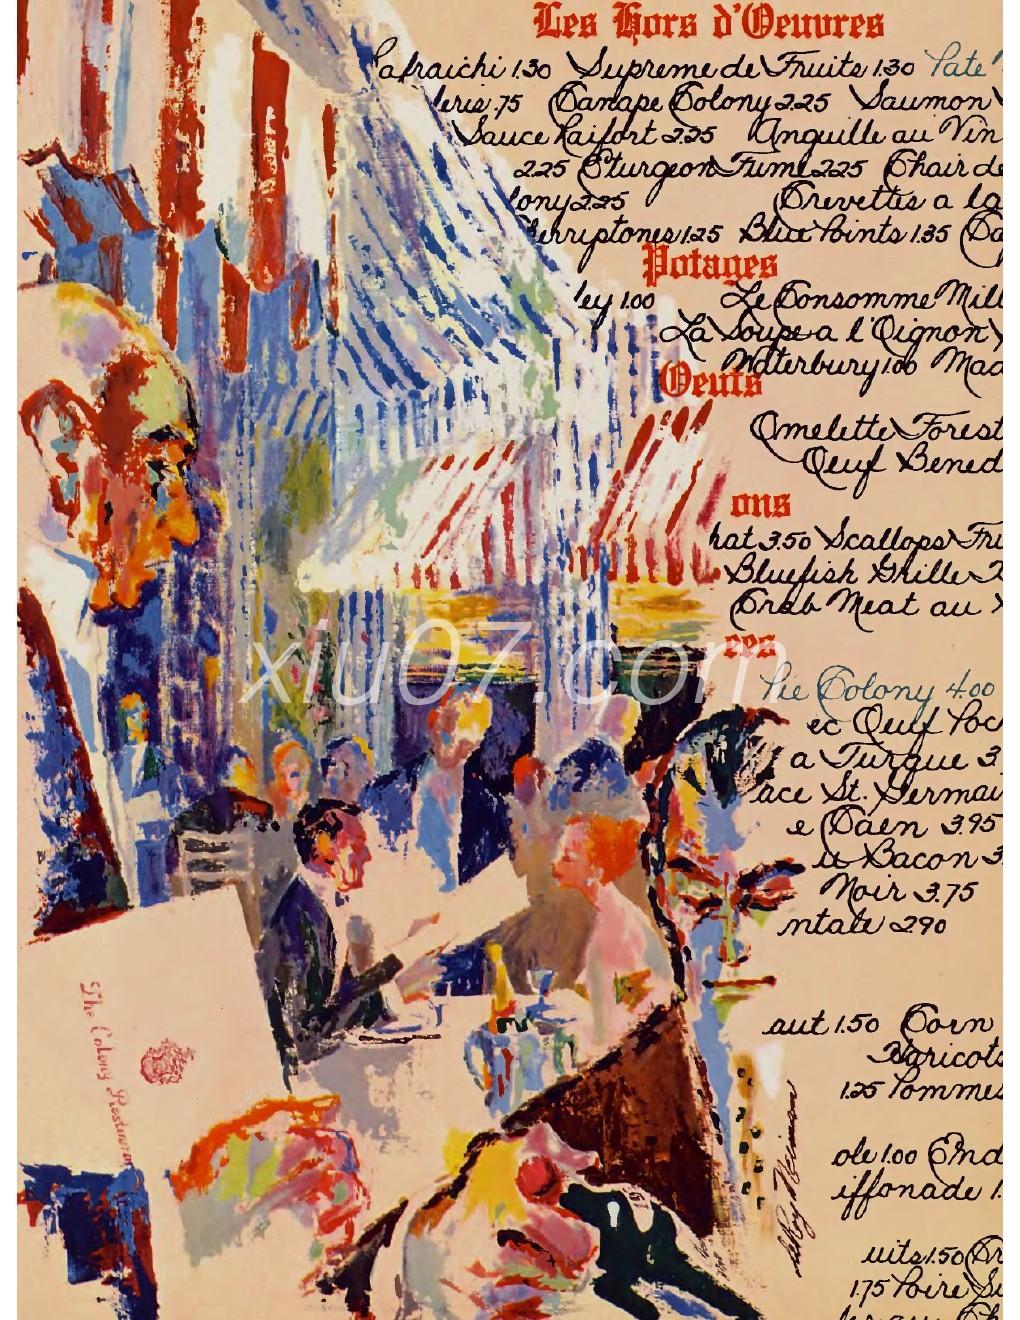 Les Hors d'Oeuvres
Rafraichi 1.30 Supreme de Fruits 1.30 Pate
leris .75 Canape Colony 2.25 Saumon
Sauce Raifort 2.25 Anguille au Vin
2.25 Sturgeon Fume 2.25 Chair de
lony 2.25 Crevettes a la
herrystones 1.25 Blue Points 1.35
Potages
ley 1.00 Le Consomme Mill
La Soupe a l'Oignon
Waterbury 1.00 Mad
Oeufs
Omelette Forest
Oeuf Bened
ons
hat 3.50 Scallops Fri
Bluefish Grille
Crab Meat au
ees
xiu07.com
Colony 4.00
ec Oeuf Poc
a Turque 3
ace St. Germai
e Caen 3.95
u Bacon 3.
Noir 3.75
ntale 2.90
The Colony Restaurant
aut 1.50 Corn
Haricots
1.25 Pommes
LeRoy Neiman
ole 1.00 End
iffonade 1.
uits 1.50
1.75 Poire